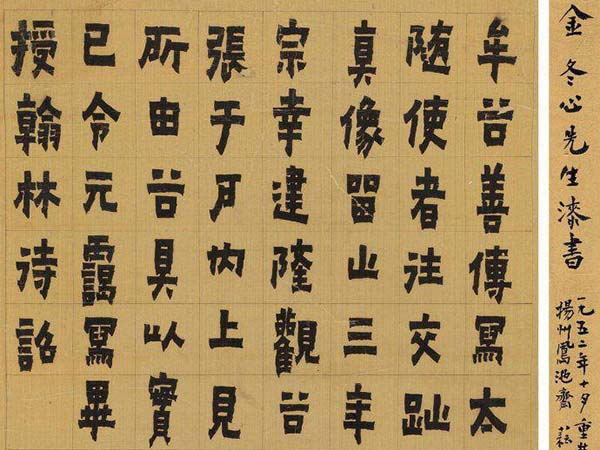 金冬心先生漆書
一九五二年十月重
揚州鳳池齋
牟谷善傳寫太
随使者往交趾
真像留山三年
宗幸建隆觀谷
張于戶内上見
所由谷具以實
已令元靄寫畢
授翰林待詔